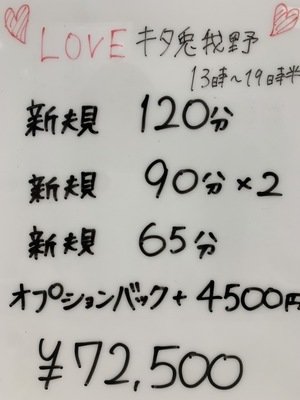 LOVE キタ兎我野
13時~19時半
新規 120分
新規 90分×2
新規 65分
オプションバック+4500円
¥72,500